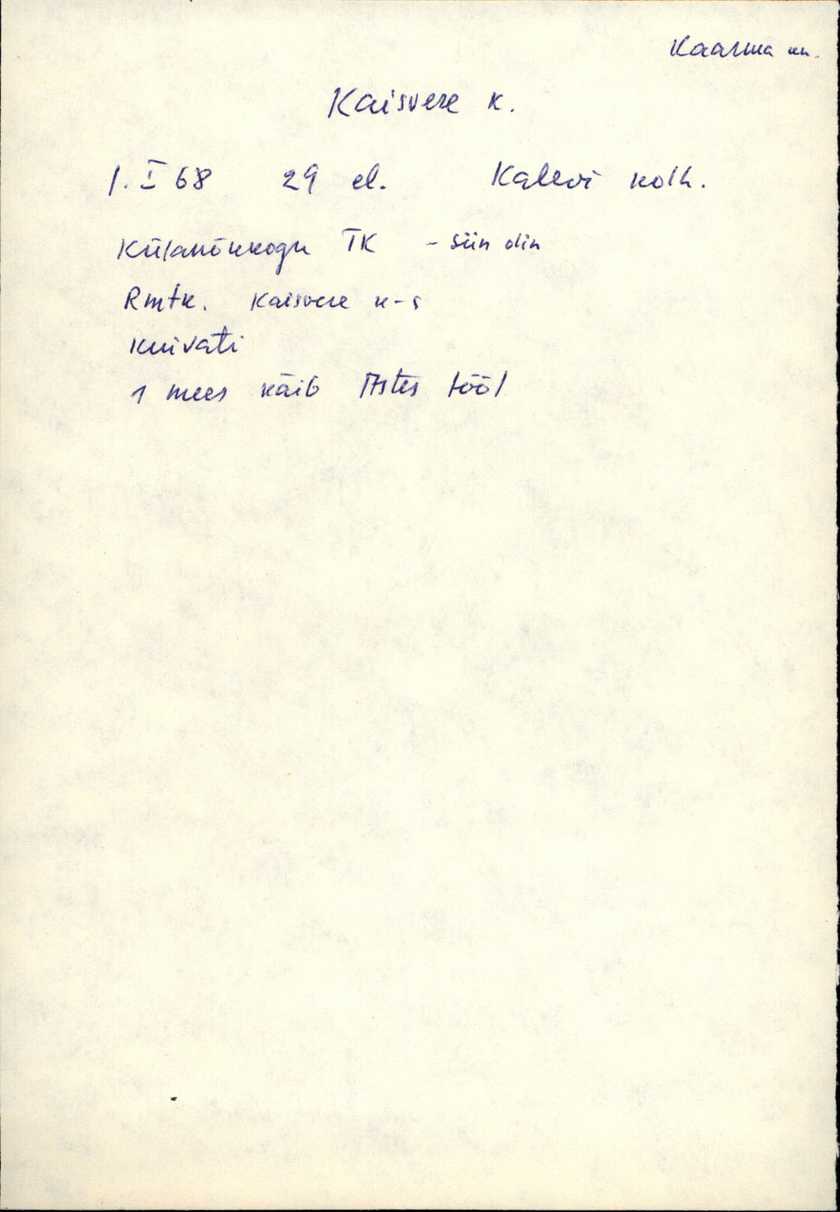 Kaarma kn.
Kaisvere k.
1. I 68 29 el. Kalevi kolh.
Külanõukogu TK - siin olin
Rmtk. Kaisvere k-s
kuivati
1 mees käib Astes tööl